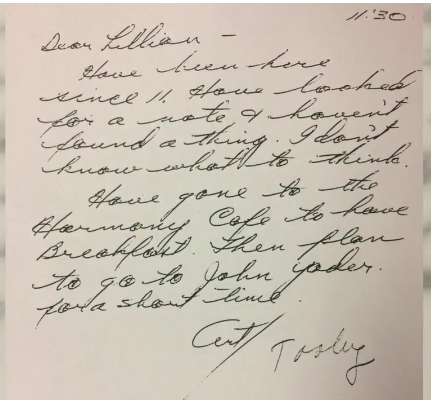 11:30
Dear Lillian -
Have been here
since 11. Have looked
for a note & haven't
found a thing. I don't
know what to think.
Have gone to the
Harmony Cafe to have
Breakfast. Then plan
to go to John Yoder.
for a short time.
Art/
Tooley